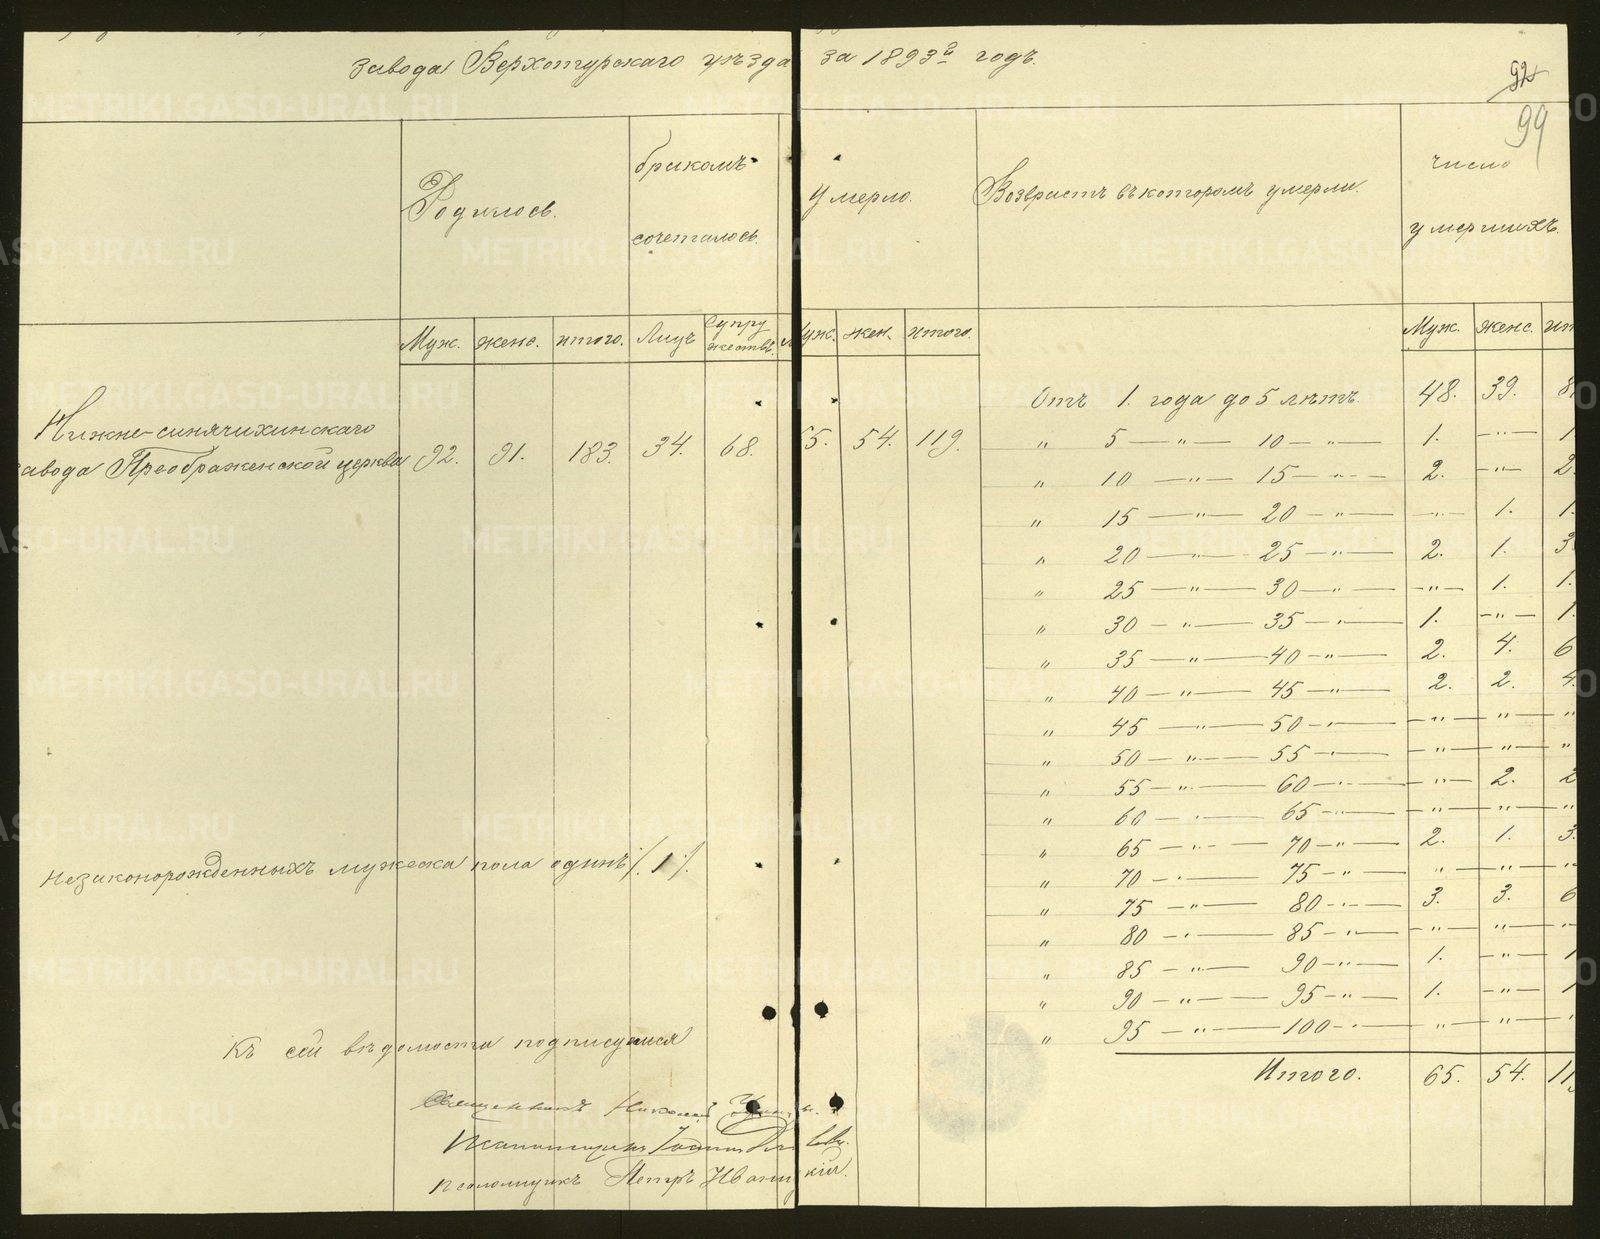 завода Верхотурскаго уѣзда за 1893й годъ.
92
99
Родилось.
бракомъ
сочеталось.
Умерло.
Возврастъ въ которомъ умерли.
число
умершихъ.
Муж. женс. итого. Лицъ Супружествъ. Муж. жен. итого.
Муж. женс. ит
Нижне-синячихинскаго
завода Преображенской церкви 92. 91. 183. 34. 68. 65. 54. 119.
Отъ 1. года до 5 лѣтъ. 48. 39. 8
" 5 — " — 10 — " — 1. — " — 1
" 10 — " — 15 — " — 2. — " — 2
" 15 — " — 20 — " — — " — 1. 1.
" 20 — " — 25 — " — 2. 1. 3
" 25 — " — 30 — " — — " — 1. 1.
" 30 — " — 35 — " — 1. — " — 1.
" 35 — " — 40 — " — 2. 4. 6
" 40 — " — 45 — " — 2. 2. 4.
" 45 — " — 50 — " — — " — " — "
" 50 — " — 55 — " — — " — " — "
" 55 — " — 60 — " — — " — 2. 2
" 60 — " — 65 — " — — " — " — "
" 65 — " — 70 — " — 2. 1. 3.
" 70 — " — 75 — " — " — " — "
" 75 — " — 80 — " — 3. 3. 6
" 80 — " — 85 — " — — " — " — "
" 85 — " — 90 — " — 1. — " — 1
" 90 — " — 95 — " — 1. — " — 1
" 95 — " — 100 — " — " — " — "
Итого. 65. 54. 11
незаконорожденныхъ мужеска пола одинъ /.1/.
Къ сей вѣдомости подписуемся
Священникъ Николай
Псаломщикъ Іоаннъ
псаломщикъ Петръ Иваницкій.
METRIKI.GASO-URAL.RU